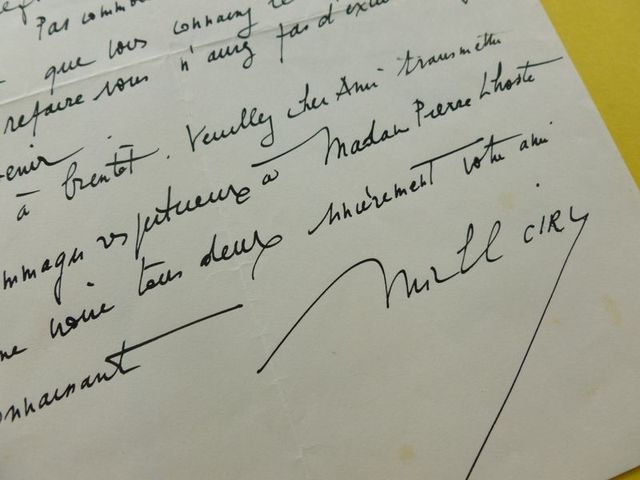 Pas commo
que vous connaissez
refaire vous n'aurez pas d'exc
enir
à bientôt. Veuillez cher Ami transmettre
mmages respectueux à Madame Pierre Lhoste
me voire tous deux sincèrement votre ami
onnaissant
Michel CIRY